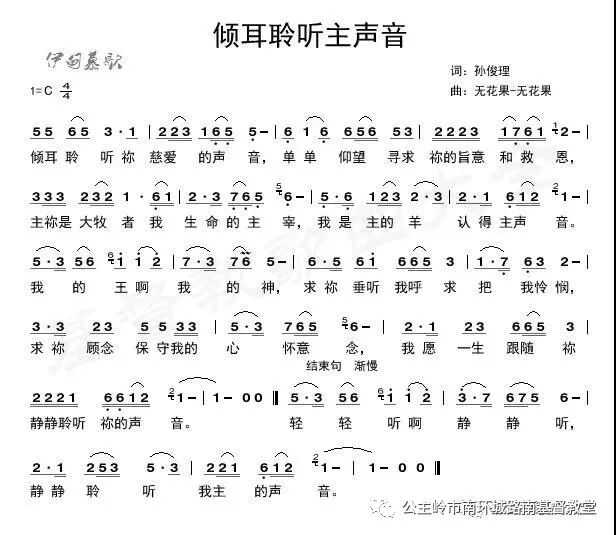 倾耳聆听主声音
伊甸慕歌
词：孙俊理
1=C 4/4
曲：无花果-无花果
55 65 3·1 | 223 165 5- | 6 1 6 656 53 | 2223 1761 2- |
倾耳聆 听祢 慈爱 的声 音，单单 仰望 寻求 祢的旨意 和救 恩，
333 232 1·61 | 2·3 765 6- | 5·6 123 2·3 | 2·1 612 1- |
主祢是 大牧 者我 生命 的主 宰，我是 主的 羊 认得 主声 音。
5·3 56 1 12 | 2·3 76 5- | 6·5 61 1·2 3 | 1·7 63 2- |
我的 王啊 我的 神，求祢 垂听 我呼 求 把我 怜悯，
3·3 23 5 535 | 5·3 765 6- | 2·1 23 665 3 |
求祢 顾念 保守我的 心 怀意 念，我愿 一生 跟随 祢
结束句 渐慢
2221 6612 1- | 1- 00 | 5·3 56 1 12 | 3·7 675 6- |
静静聆听 祢的声 音。 轻轻 听啊 静静 听，
2·1 253 5·3 | 221 612 1- | 1- 00 |
静静 聆 听 我主 的声 音。
公主岭市南环城路南基督教堂